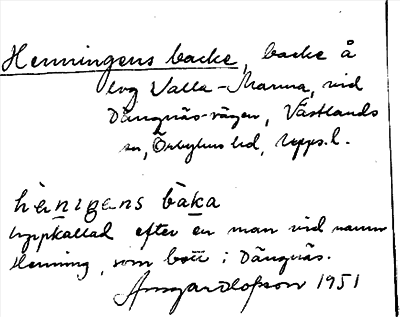 Henningens backe, backe å
lvg Valla-Marma, vid
Dängnäs-vägen, Västlands
sn, Örbyhus hd, Upps. l.
hèniŋens bàka
Uppkallad efter en man vid namn
Henning, som bott i Dängnäs.
Ansgar Olofson 1951